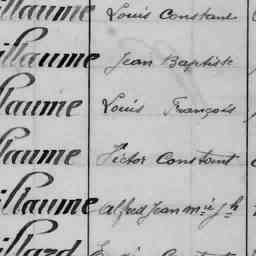 illaume Louis Constant
illaume Jean Baptiste
laume Louis François
laume Victor Constant
illaume Alfred Jean Mie Jh
illard